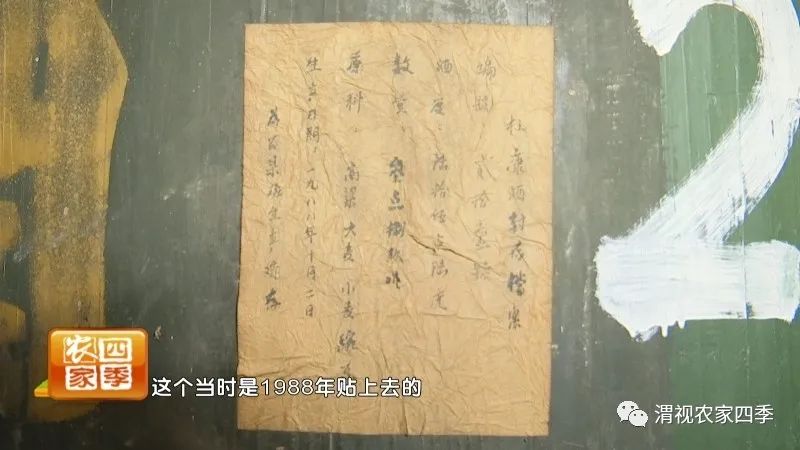 杜康酒封存档案
编号：贰拾壹号
酒度：陆拾伍点陆度
数量：点捌
原料：高粱 大麦 小麦
生产日期：一九八八年十月二日
2
四季
农家
这个当时是1988年贴上去的
渭视农家四季